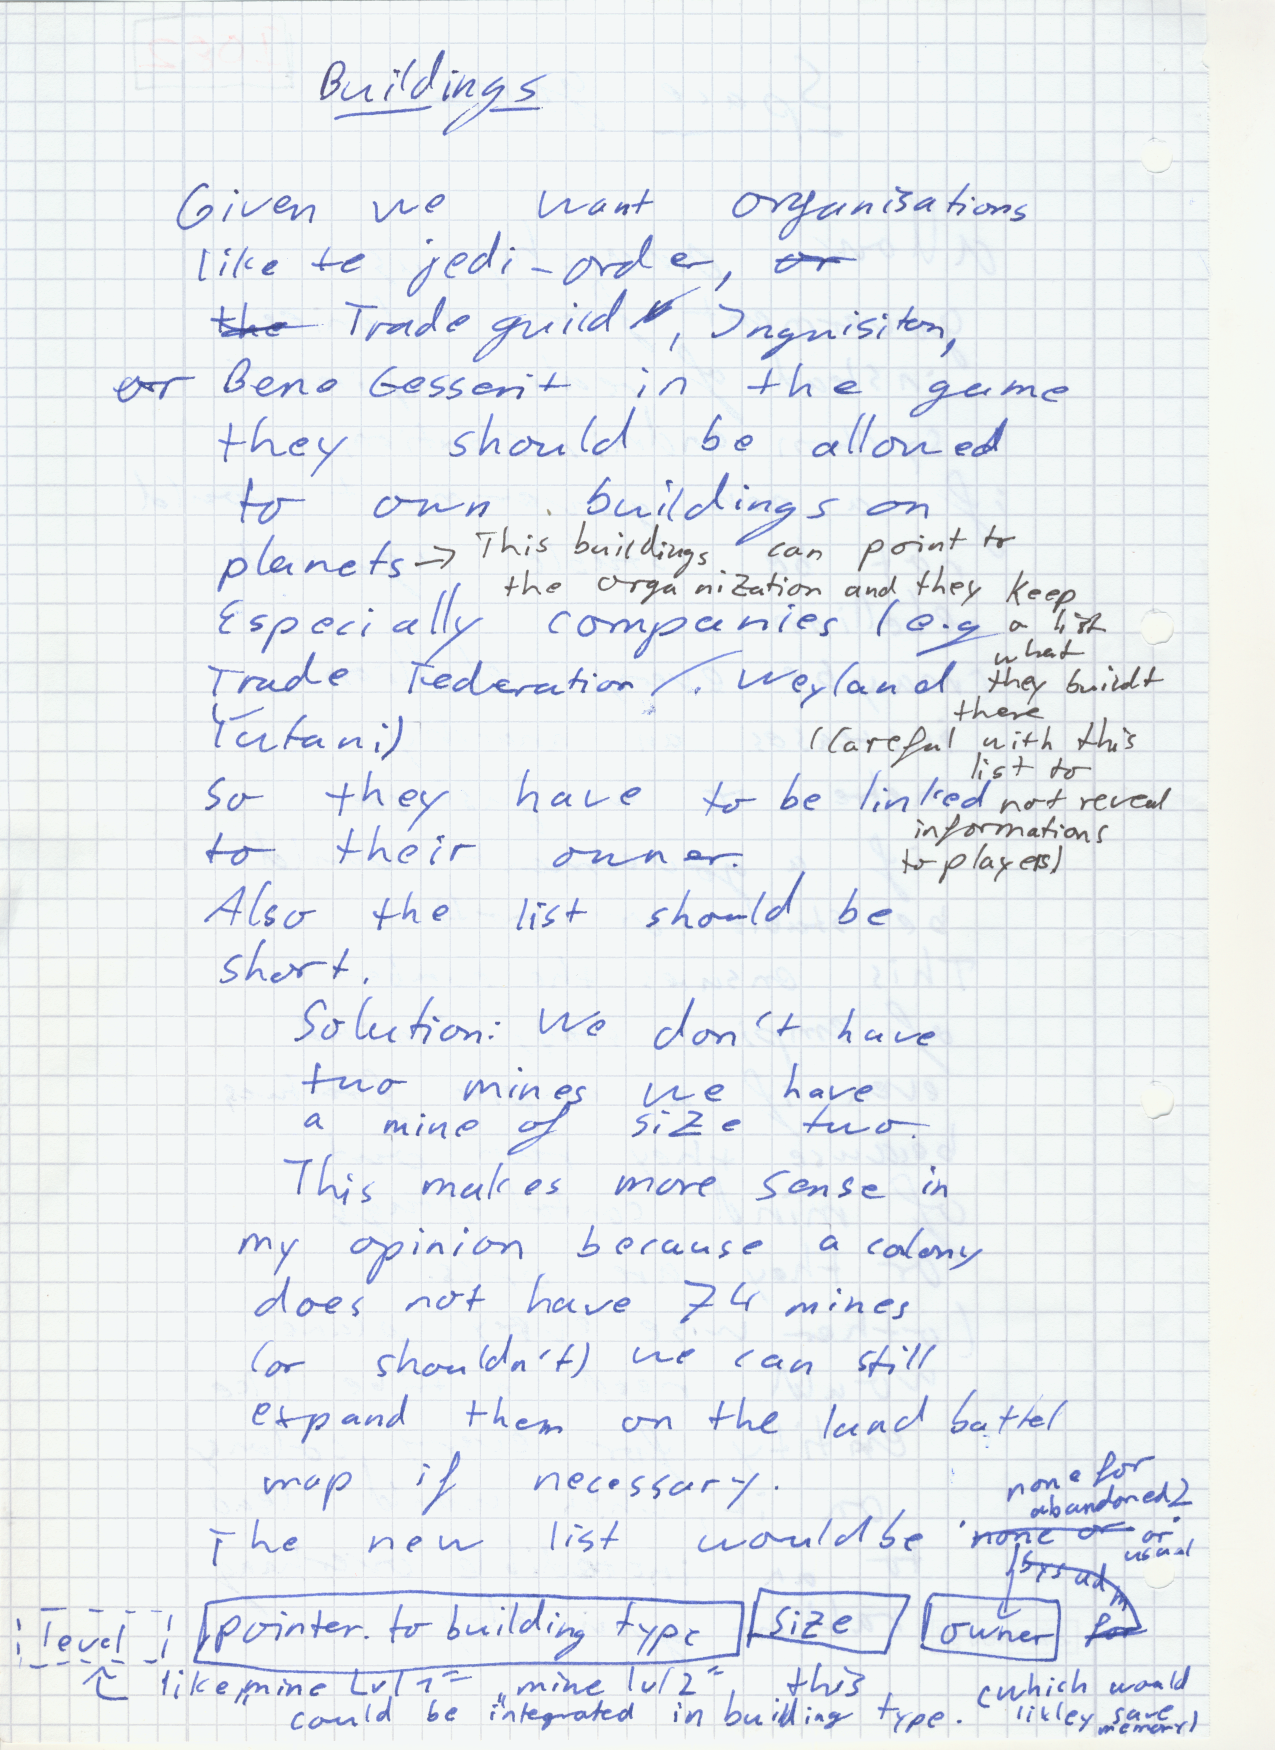 Buildings
Given we want organisations
like te jedi-order, or
the Trade guild, Inquisiton,
or Bene Gesserit in the game
they should be allowed
to own buildings on
planets → This buildings can point to
the organization and they keep
a list
what
they buildt
there
(Careful with this
list to
not reveal
informations
to players)
Especially companies (e.g
Trade Federation, Weyland
Yutani)
so they have to be linked
to their owner.
Also the list should be
short.
Solution: We don't have
two mines we have
a mine of size two.
This makes more sense in
my opinion because a colony
does not have 74 mines
(or shouldn't) we can still
expand them on the land battel
map if necessary.
The new list would be none or
none for
abandoned2
or
usual
sys adm
level pointer to building type size owner for
like „mine Lvl 1" „mine lvl 2", this
could be integrated in building type.
(which would
likley save
memory)